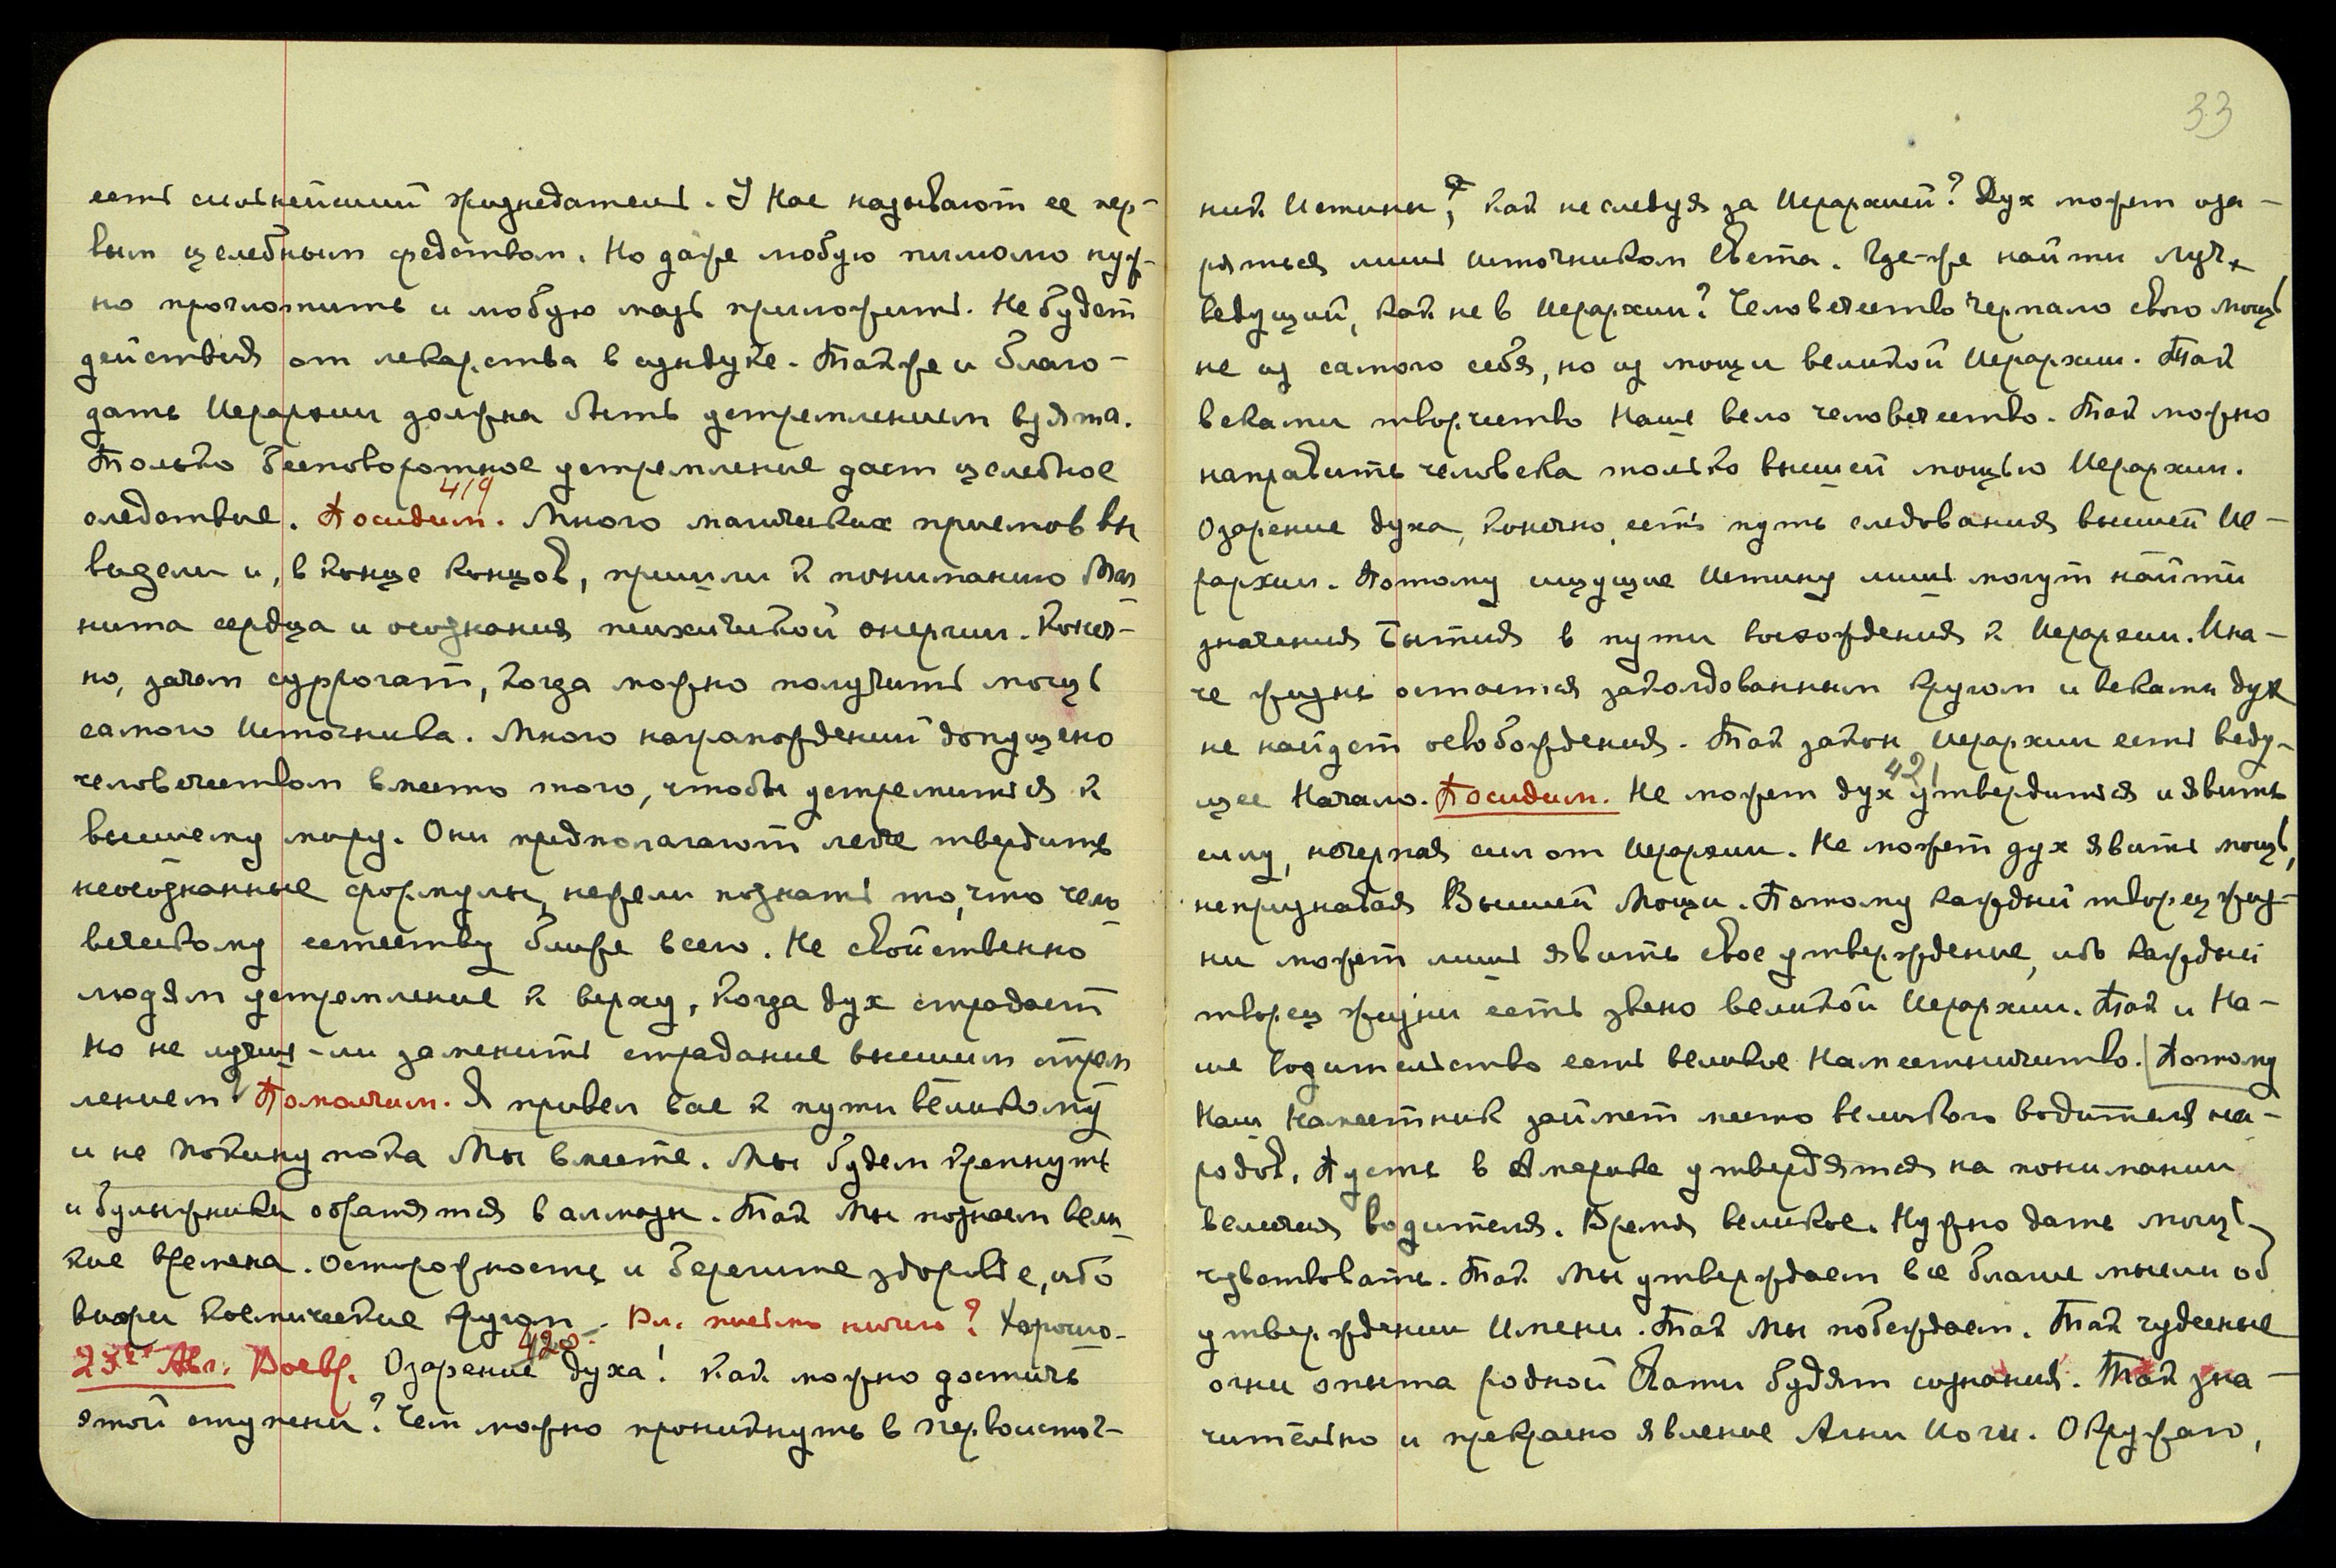 есть сильнейший жизнедатель. У Нас называют ее пер-
вым целебным средством. Но даже любую пилюлю нуж-
но проглотить и любую мазь приложить. Не будет
действия от лекарства в сундуке. Также и благо-
дать Иерархии должна быть устремлением взята.
Только бесповоротное устремление дает целебное
419
следствие. Посидим. Много магических приемов вы
видели и, в конце концов, пришли к пониманию Маг-
нита сердца и осознания психической энергии. Конеч-
но, зачем суррогат, когда можно получить мощь
самого Источника. Много нагромождений допущено
человечеством вместо того, чтобы устремиться к
высшему миру. Они предполагают легче твердить
неосознанные формулы, нежели познать то, что чело-
веческому естеству ближе всего. Не свойственно
людям устремление к верху, когда дух страдает
Но не лучше-ли заменить страдание высшим стрем-
лением? Помолчим. Я привел вас к пути великому
и не покину пока Мы вместе. Мы будем крепнуть
и булыжники обратятся в алмазы. Так Мы познаем вели-
кие времена. Осторожность и берегите здоровье, ибо
вихри космические кругом. Вл. письмо ничего? Хорошо.
420.
23го Авг. Воскр. Озарение духа! Как можно достичь
этой ступени? Чем можно проникнуть в первоисточ-
33
ник Истины, как не следуя за Иерархией? Дух может оза-
ряться лишь источником Света. Где-же найти луч,
ведущий, как не в Иерархии? Человечество черпало свою мощь
не из самого себя, но из мощи великой Иерархии. Так
веками творчество Наше вело человечество. Так можно
направить человека только высшей мощью Иерархии.
Озарение духа, конечно, есть путь следования высшей Ие-
рархии. Потому ищущие Истину лишь могут найти
значения Бытия в пути восхождения к Иерархии. Ина-
че жизнь остается заколдованным кругом и веками дух
не найдет освобождения. Так закон Иерархии есть веду-
421
щее Начало. Посидим. Не может дух утвердиться и явить
силу, не черпая сил от Иерархии. Не может дух явить мощь,
не признавая Высшей Мощи. Потому каждый творец жиз-
ни может лишь явить свое утверждение, ибо каждый
творец жизни есть звено великой Иерархии. Так и На-
ше водительство есть великое Наместничество. Потому
Наш Наместник займет место великого водителя на-
родов. Пусть в Америке утвердятся на понимании
величия водителя. Время великое. Нужно дать мощь
чувствовать. Так Мы утверждаем все благие мысли об
утверждении Имени. Так Мы побеждаем. Так чудесные
огни опыта родной Свати будят сознания. Так зна-
чительно и прекрасно явление Агни Йоги. Окружаю,